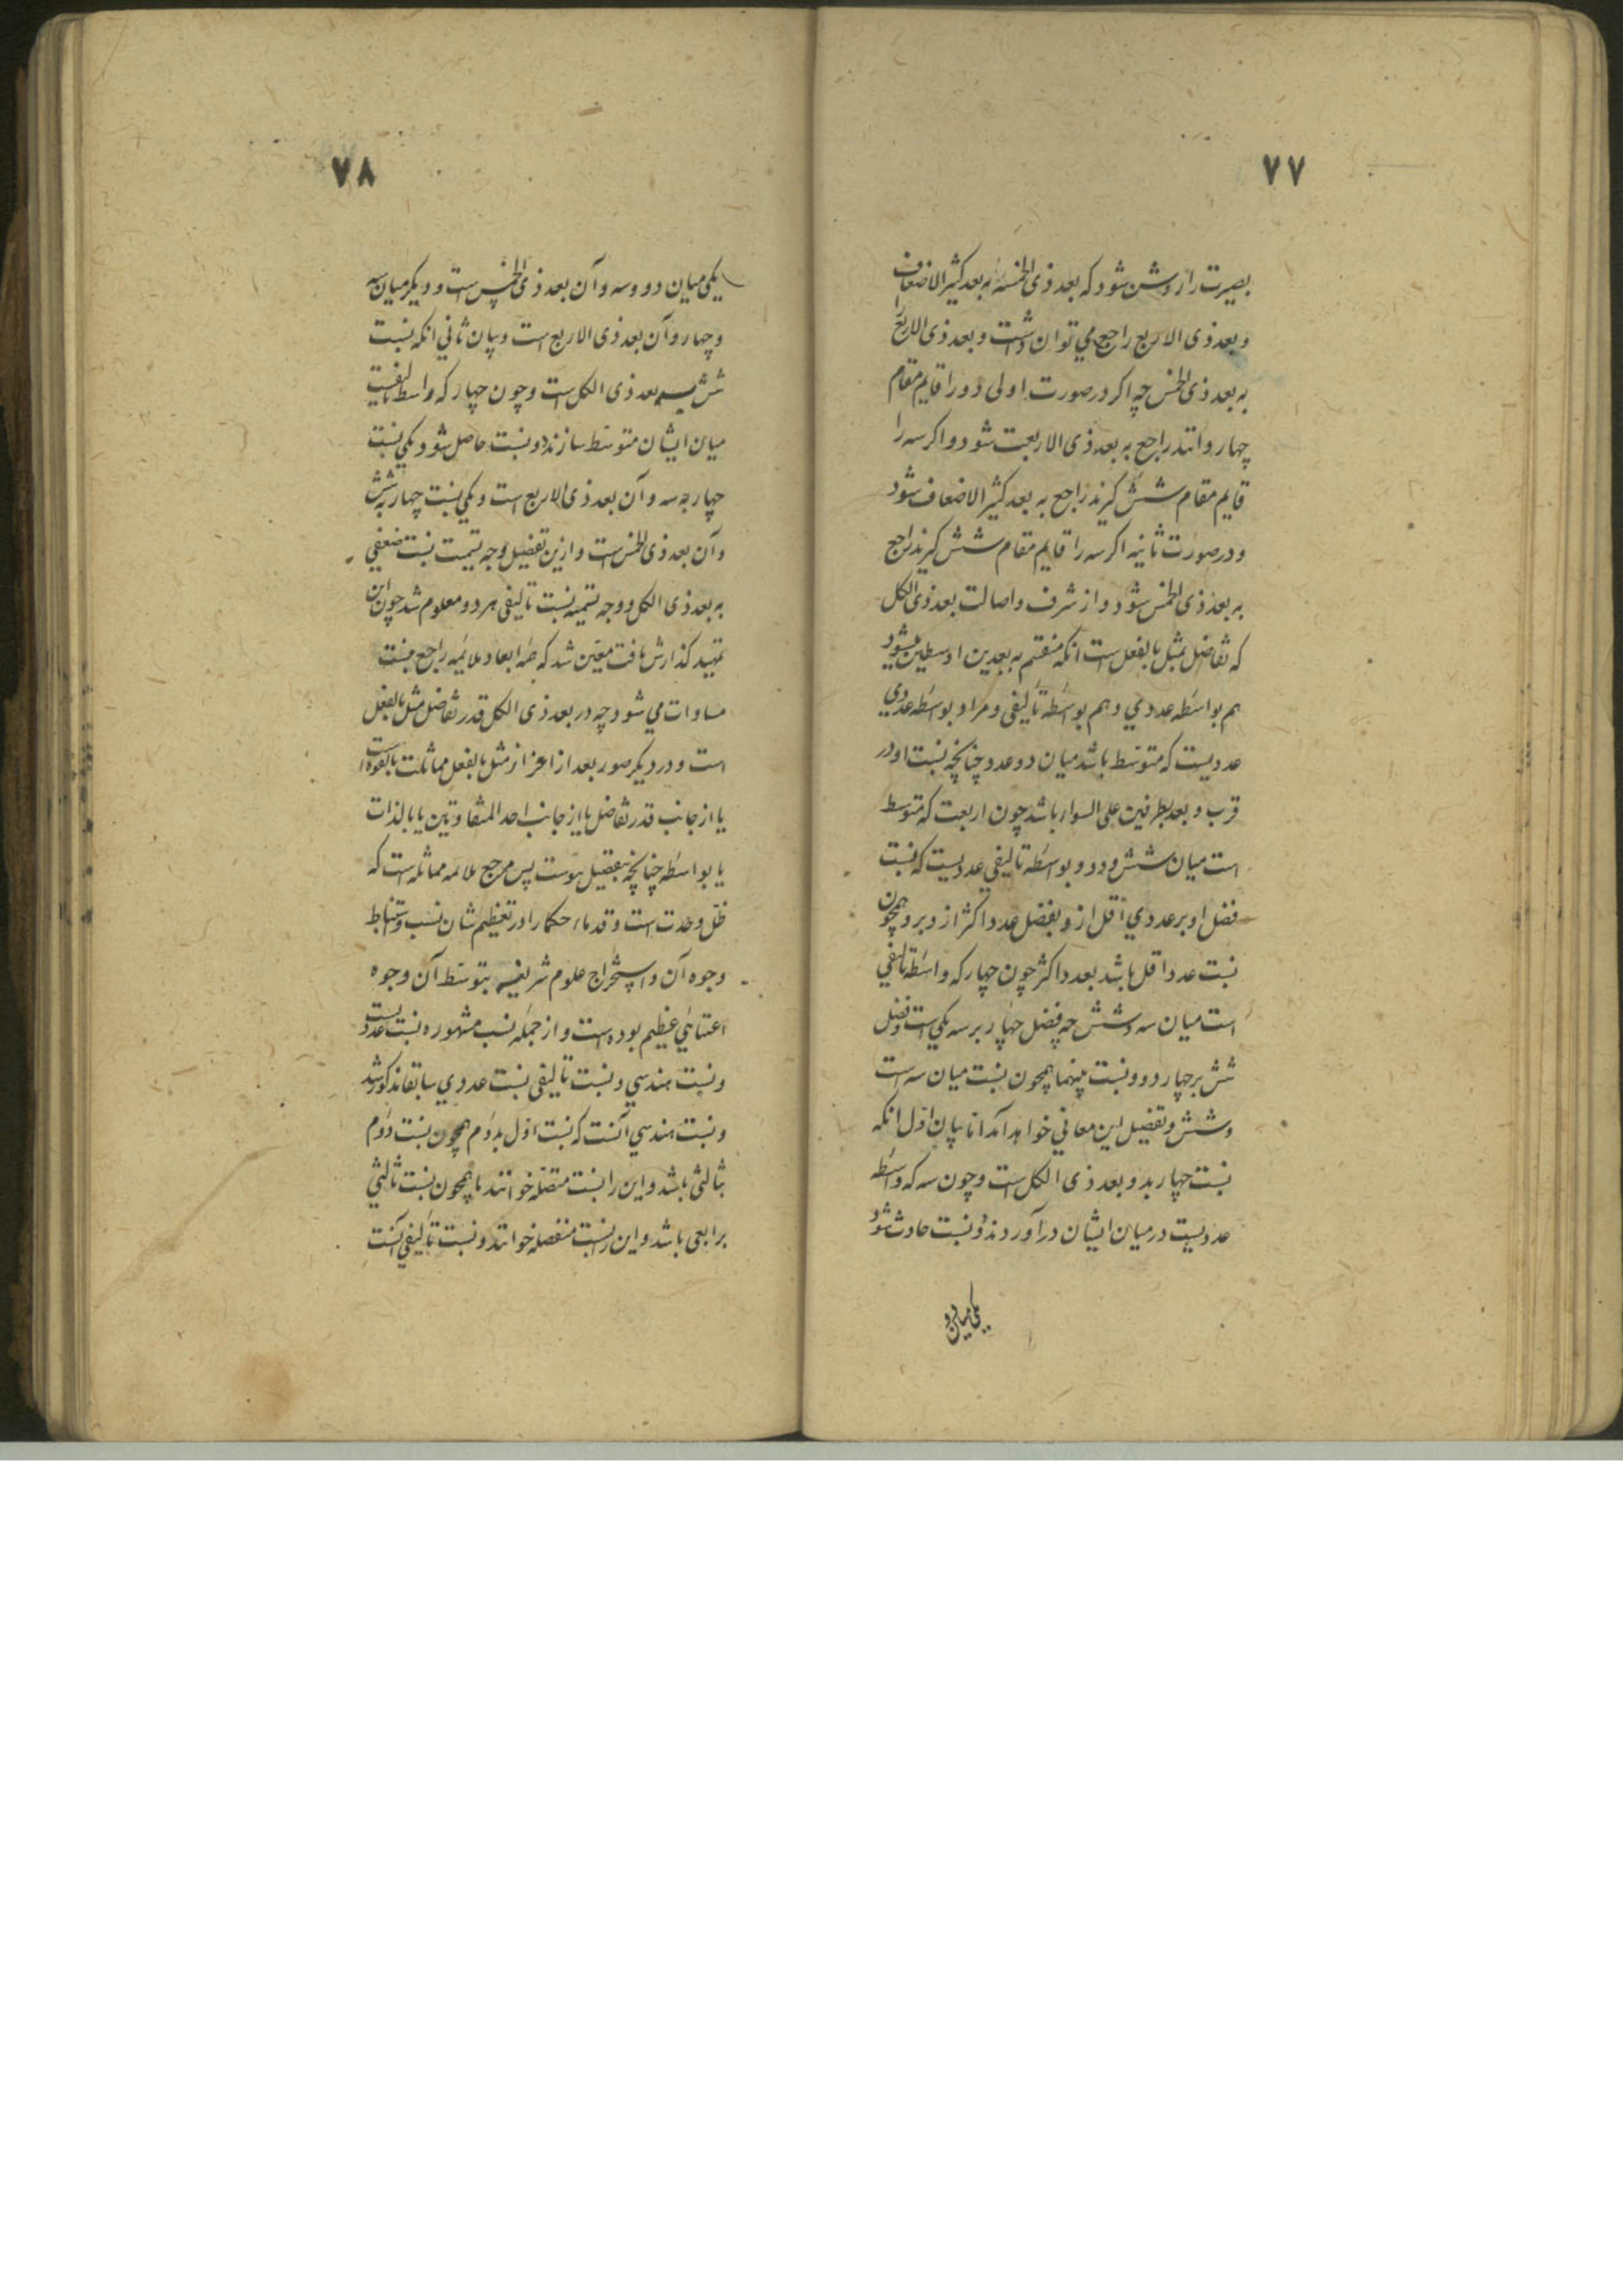 ۷۷
بصیرت را روشن شود که بعد ذی الخمسه به بعد کثیر الاضعاف
و بعد ذی الاربع راجع می توان داشت و بعد ذی الاربع
به بعد ذی الخمس چه اکر در صورت اولی دو را قایم مقام
چهار دانند راجع به بعد ذی الاربعت شود و اکر سه را
قایم مقام شش کیرند راجع به بعد کثیر الاضعاف شود
و در صورت ثانیه اکر سه را قایم مقام شش کیرند راجع
به بعد ذی الخمس شود و از شرف و اصالت بعد ذی الکل
که تفاضل بمثل بالفعل است انکه منقسم به بعدین اوسطین میشود
هم بواسطه عددی و هم بواسطه تالیفی و مراد بواسطه عددی
عددیست که متوسط باشد میان دو عدد چنانچه نسبت او در
قرب و بعد بطرفین علی السواء باشد چون اربعت که متوسط
است میان شش و دو و بواسطه تالیفی عددیست که نسبت
فضل او بر عددی اقل ازو بفضل عدد اکثر ازو برو همچون
نسبت عدد اقل باشد بعدد اکثر چون چهار که واسطه تالیفی
است میان سه و شش چه فضل چهار بر سه یکی است و فضل
شش بر چهار دو و نسبت بینهما همچون نسبت میان سه است
و شش و تفصیل این معانی خواهد آمد اما بیان اول انکه
نسبت چهار بدو بعد ذی الکل است و چون سه که واسطه
عددیست در میان ایشان درآوردند دو نسبت حادث شود
یکی میان دو
۷۸
یکی میان دو و سه و آن بعد ذی الخمس است و دیکر میان سه
و چهار و آن بعد ذی الاربع است و بیان ثانی انکه نسبت
شش بسه بعد ذی الکل است و چون چهار که واسطه تالیفیست
میان ایشان متوسط سازند دو نسبت حاصل شود یکی نسبت
چهار به سه و آن بعد ذی الاربع است و یکی نسبت چهار به شش
و آن بعد ذی الخمس است و ازین تفصیل وجه تسمیت نسبت ضعفی
به بعد ذی الکل و وجه تسمیه نسبت تالیفی هر دو معلوم شد چون این
تمهید کذارش یافت معین شد که همه ابعاد ملایمه راجع بنسبت
مساوات می شود چه در بعد ذی الکل قدر تفاضل مثل بالفعل
است و در دیکر صور بعد از اعزاز مثل بالفعل مماثلت بالقوه است
یا از جانب قدر تفاضل یا از جانب احد المتفاوتین یا بالذات
یا بواسطه چنانچه بتفصیل پیوست پس مرجع ملائمه مماثله است که
ظل وحدت است و قدماء حکما را در تعظیم شان نسب و استنباط
وجوه آن و استخراج علوم شریفه بتوسط آن وجوه
اعتنائی عظیم بوده است و از جمله نسب مشهوره نسبت عددیست
و نسبت هندسی و نسبت تالیفی نسبت عددی سابقا مذکور شد
و نسبت هندسی آنست که نسبت اول بدوم همچون نسبت دوم
بثالثی باشد و این را نسبت متصله خوانند یا همچون نسبت ثالثی
برابعی باشد و این را نسبت منفصله خوانند و نسبت تالیفی آنست